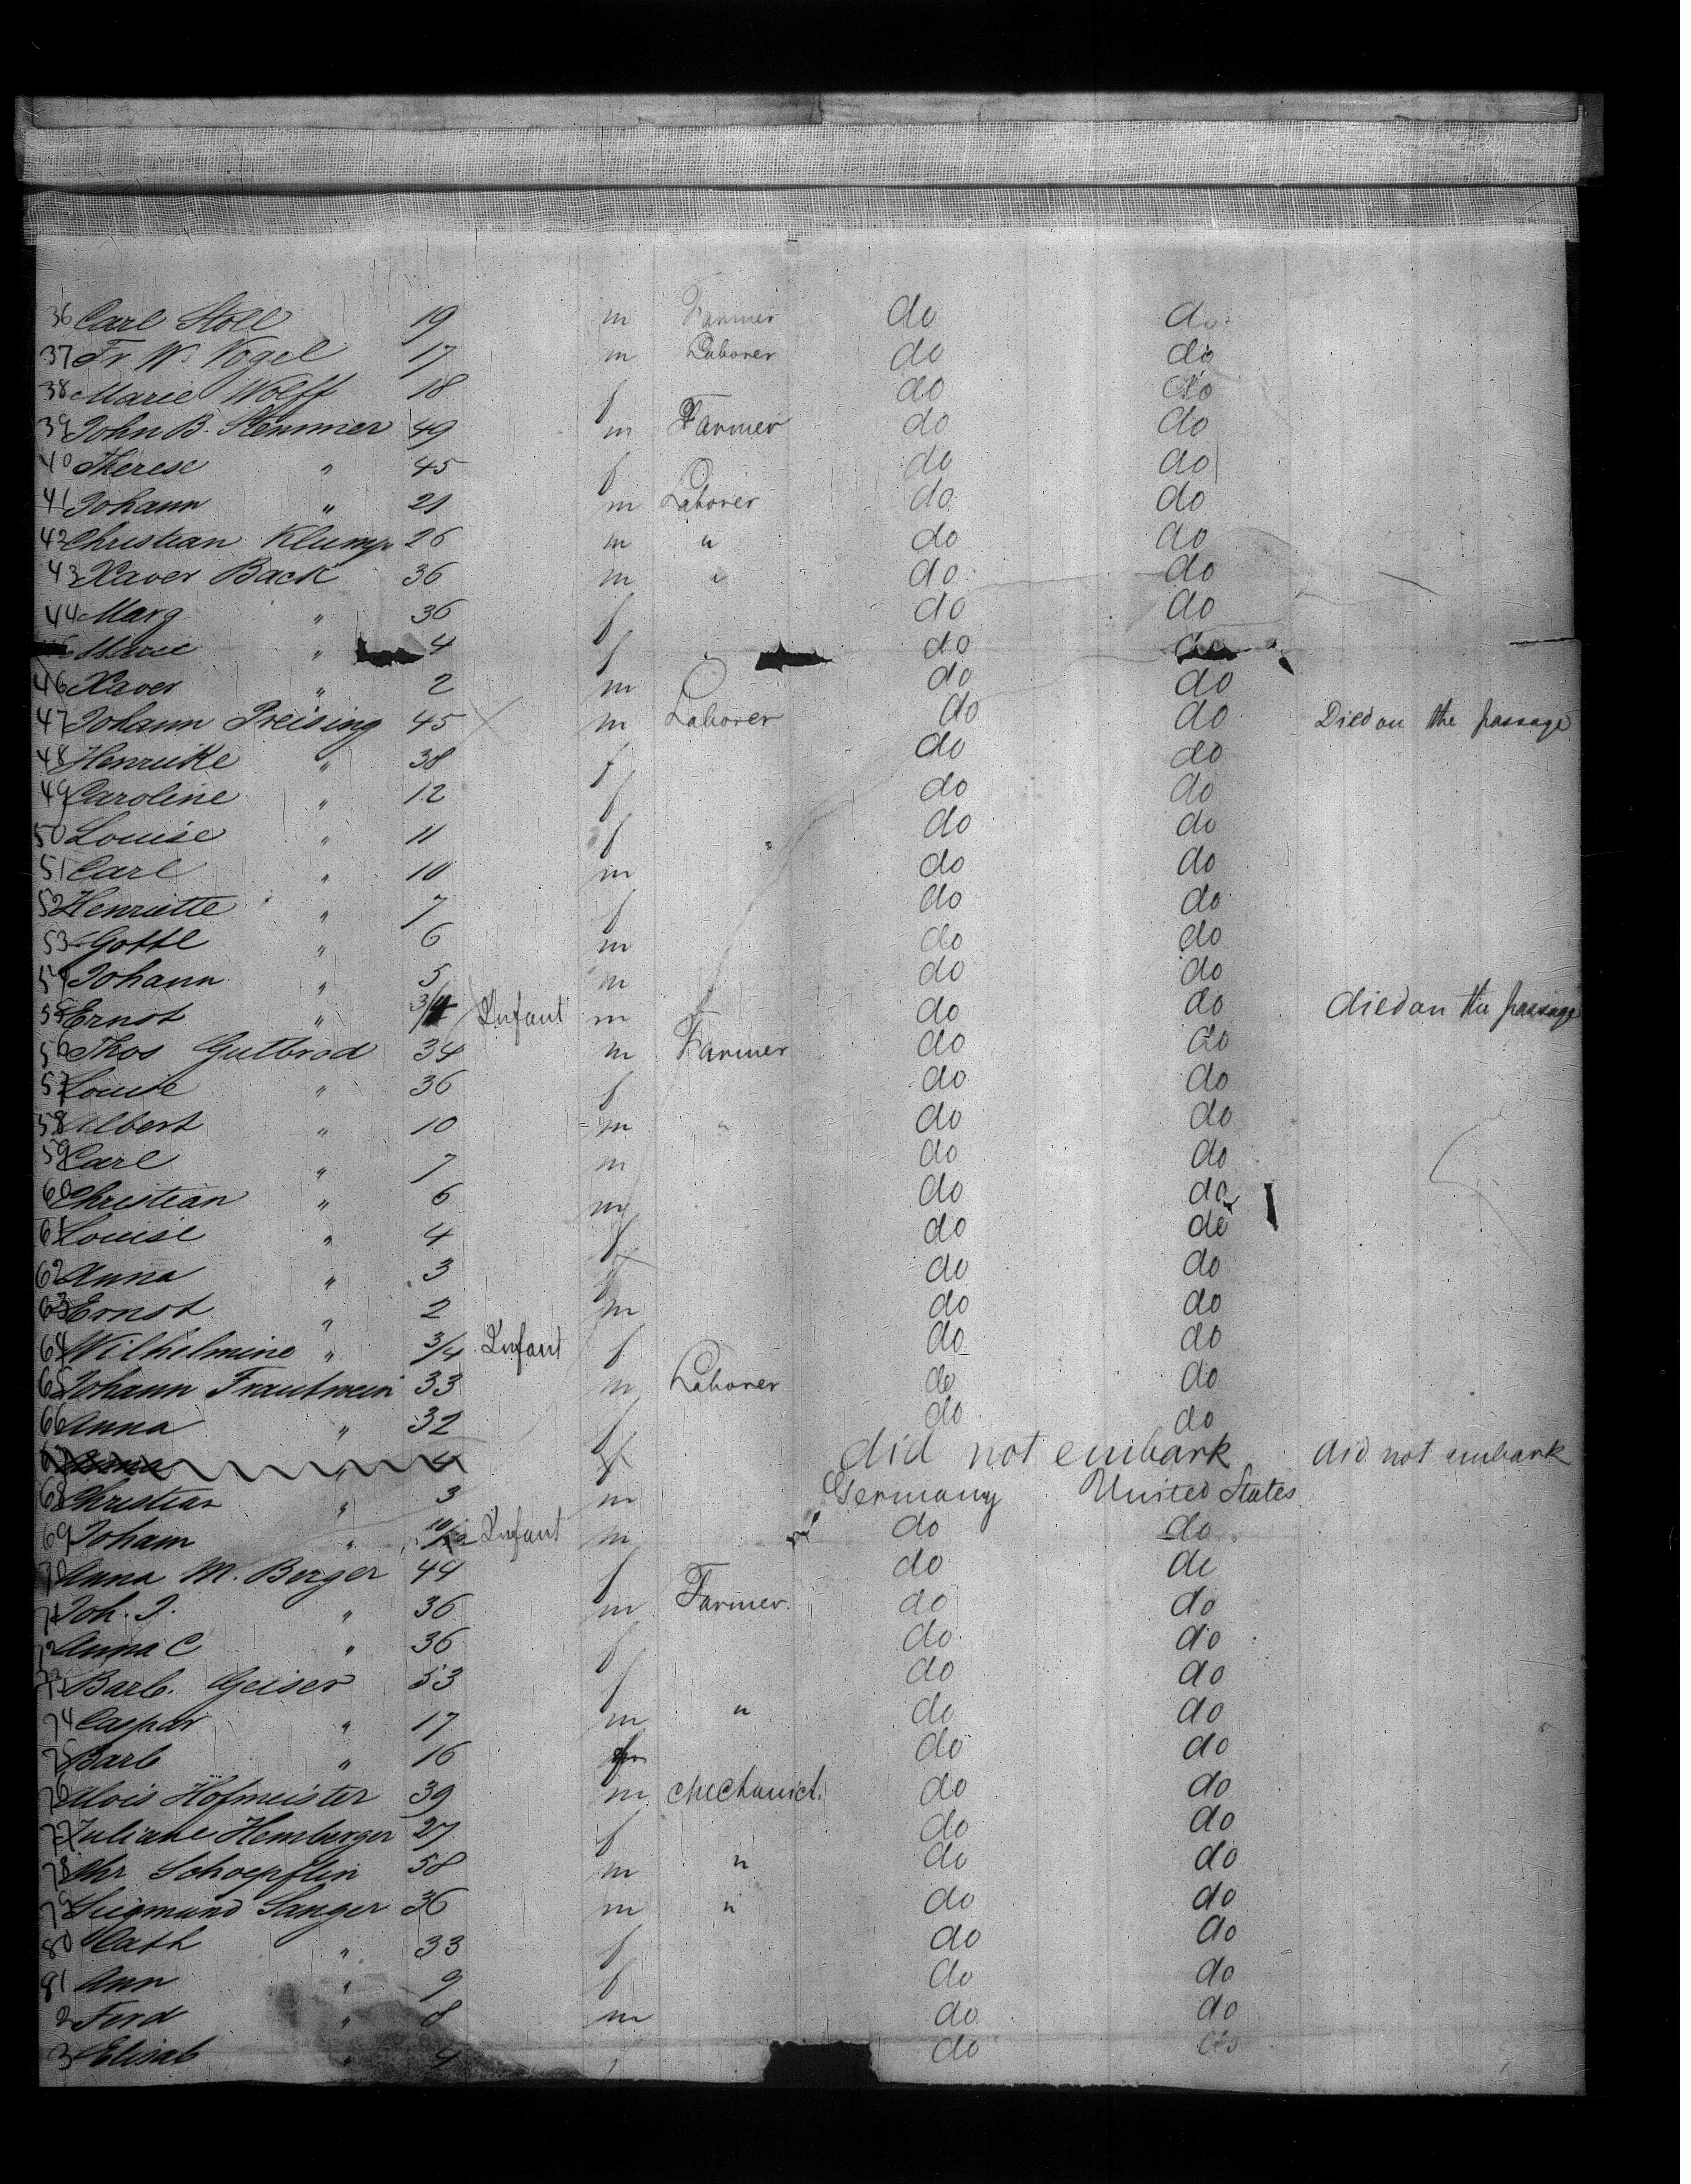 36 Carl Stoll 19 m Farmer do do
37 Fr. W. Vogel 17 m Laborer do do
38 Marie Wolff 18 f do do
39 John B. Stemmer 49 m Farmer do do
40 Therese " 45 f do do
41 Johann " 21 m Laborer do do
42 Christian Klump 26 m " do do
43 Xaver Back 36 m " do do
44 Marg " 36 f do do
Marie " 4 f do do
46 Xaver " 2 m do do
47 Johann Preising 45 m Laborer do do Died on the passage
48 Henrieke " 38 f do do
49 Caroline " 12 f do do
50 Louise " 11 f do do
51 Carl " 10 m do do
52 Henriette " 7 f do do
53 Gottl " 6 m do do
54 Johann " 5 m do do
55 Ernst " 3/4 Infant m do do died on the passage
56 Thos Gutbrod 34 m Farmer do do
57 Louise " 36 f do do
58 Albert " 10 m " do do
59 Carl " 7 m do do
60 Christian " 6 m do do
61 Louise " 4 f do do
62 Anna " 3 f do do
63 Ernst " 2 m do do
64 Wilhelmine " 3/4 Infant f do do
65 Johann Trautwein 33 m Laborer do do
66 Anna " 32 f do do
67 " 4 f did not embark did not embark
68 Christian " 3 m Germany United States
69 Joham " 10/12 Infant m do do
70 Anna M. Berger 44 f do do
71 Joh. J. " 36 m Farmer. do do
72 Anna C " 36 f do do
73 Barb. Geiser 53 f do do
74 Caspar " 17 m " do do
75 Barb " 16 f do do
76 Alois Hofmeister 39 m Mechanict. do do
77 Juliane Hemberger 27 f do do
78 Chr Schoepflin 58 m " do do
79 Siegmund Sanger 36 m " do do
80 Cath " 33 f do do
81 Ann " 9 f do do
2 Ferd " 8 m do do
3 Elisab " 4 do do